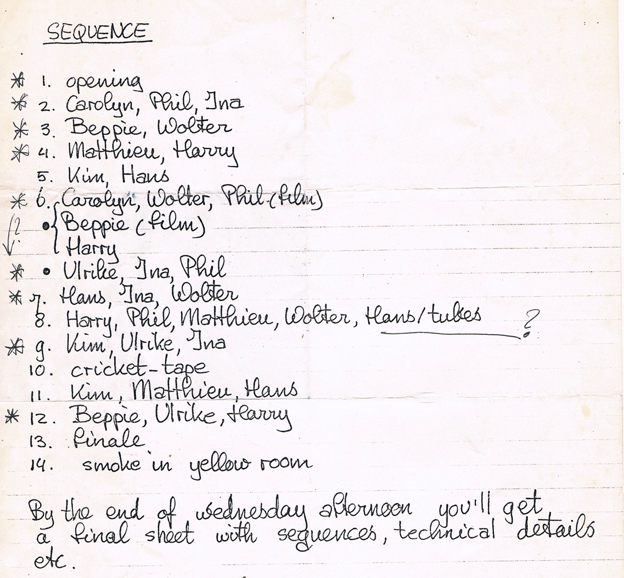 SEQUENCE
* 1. opening
* 2. Carolyn, Phil, Ina
* 3. Beppie, Wolter
* 4. Matthieu, Harry
5. Kim, Hans
* 6. Carolyn, Wolter, Phil (film)
? • { Beppie (film)
Harry
* • Ulrike, Ina, Phil
* 7. Hans, Ina, Wolter
8. Harry, Phil, Matthieu, Wolter, Hans/tubes ?
* 9. Kim, Ulrike, Ina
10. cricket-tape
11. Kim, Matthieu, Hans
* 12. Beppie, Ulrike, Harry
13. finale
14. smoke in yellow room
By the end of wednesday afternoon you'll get
a final sheet with sequences, technical details
etc.